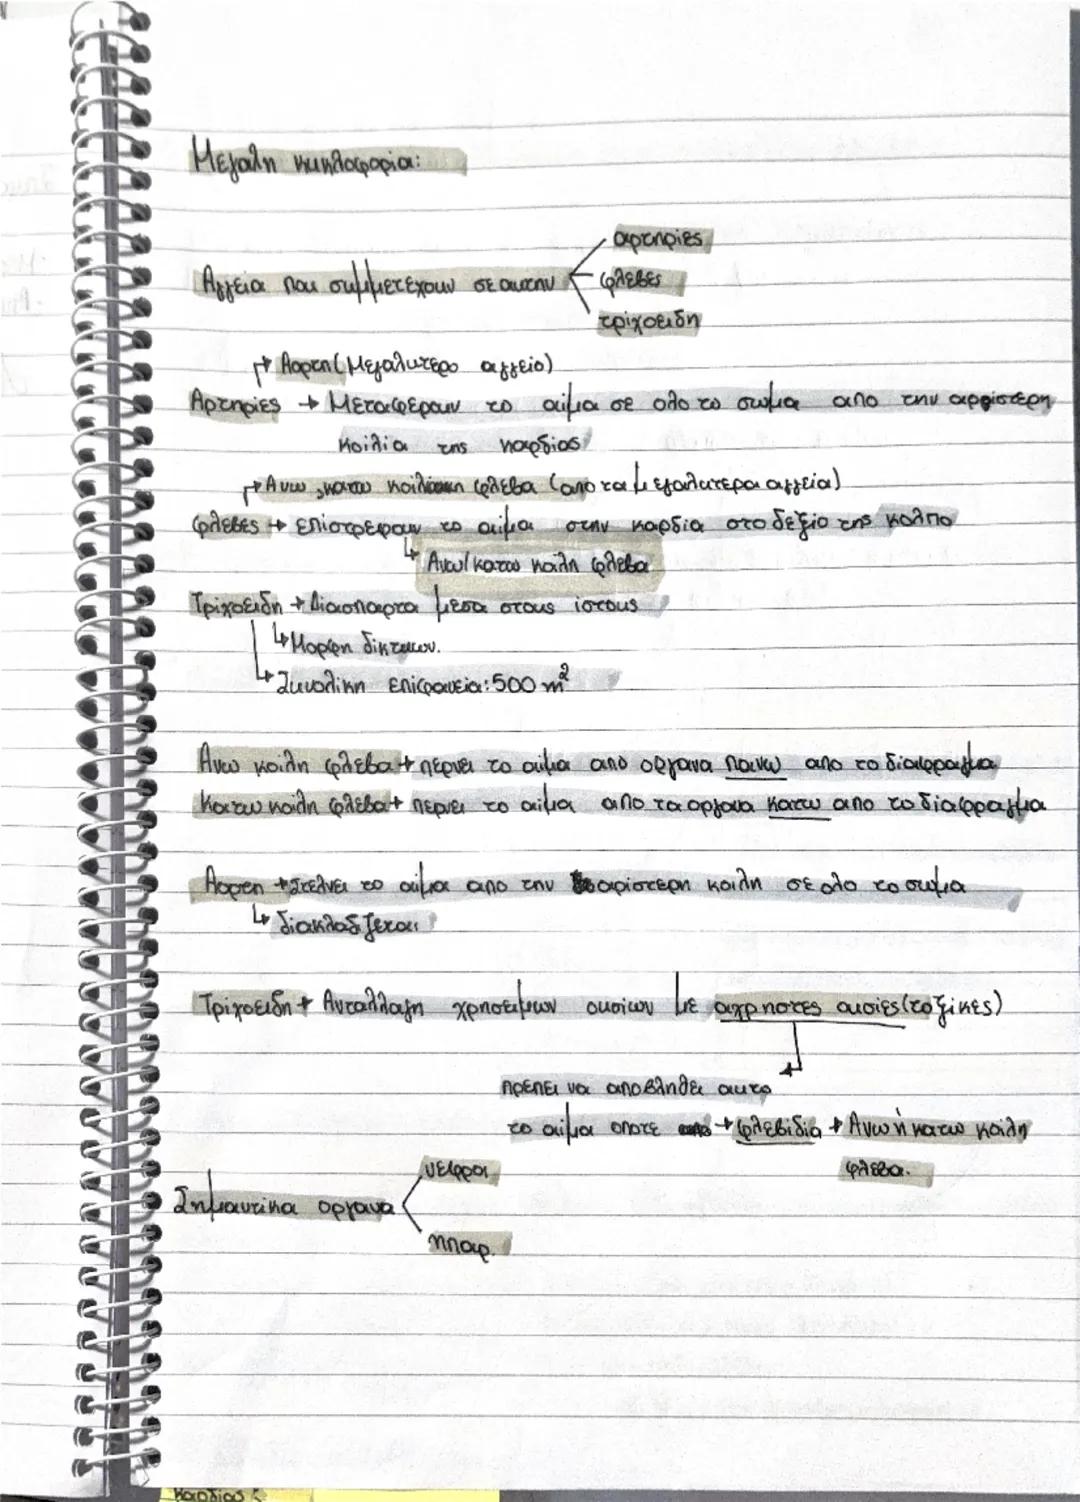 Μεγαλη κυκλοφορια:
αρτηριες
Αγγεια που συμμετεχουν σε αυτην
φλεβες
τριχοειδη
Αορτη (Μεγαλυτερο αγγειο)
Αρτηριες → Μεταφερουν το αιμα σε ολο το σωμα απο την αριστερη
κοιλια της καρδιας
Ανω, κατω κοιλη φλεβα (απο τα μεγαλυτερα αγγεια)
φλεβες → επιστρεφουν το αιμα στην καρδια στο δεξιο της κολπο
Ανω/κατω κοιλη φλεβα
Τριχοειδη → Διασπαρτα μεσα στους ιστους
Μορφη δικτυων.
Συνολικη επιφανεια: 500 m²
Ανω κοιλη φλεβα → περνει το αιμα απο οργανα πανω απο το διαφραγμα
Κατω κοιλη φλεβα → περνει το αιμα απο τα οργανα κατω απο το διαφραγμα
Αορτη → Στελνει το αιμα απο την αριστερη κοιλη σε ολο το σωμα
διακλαδζεται
Τριχοειδη → Ανταλλαγη χρησειμων ουσιων με αχρηστες ουσιες (τοξικες)
πρεπει να αποβληθει αυτο
το αιμα οποτε → φλεβιδια → Ανω ή κατω κοιλη
φλεβα.
νεφροι
Σημαντικα οργανα
ηπαρ.
καρδιας